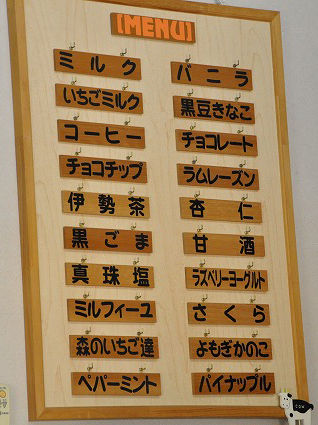 [MENU]
ミルク
いちごミルク
コーヒー
チョコチップ
伊勢茶
黒ごま
真珠塩
ミルフィーユ
森のいちご達
ペパーミント
バニラ
黒豆きなこ
チョコレート
ラムレーズン
杏仁
甘酒
ラズベリーヨーグルト
さくら
よもぎかのこ
パイナップル
COW